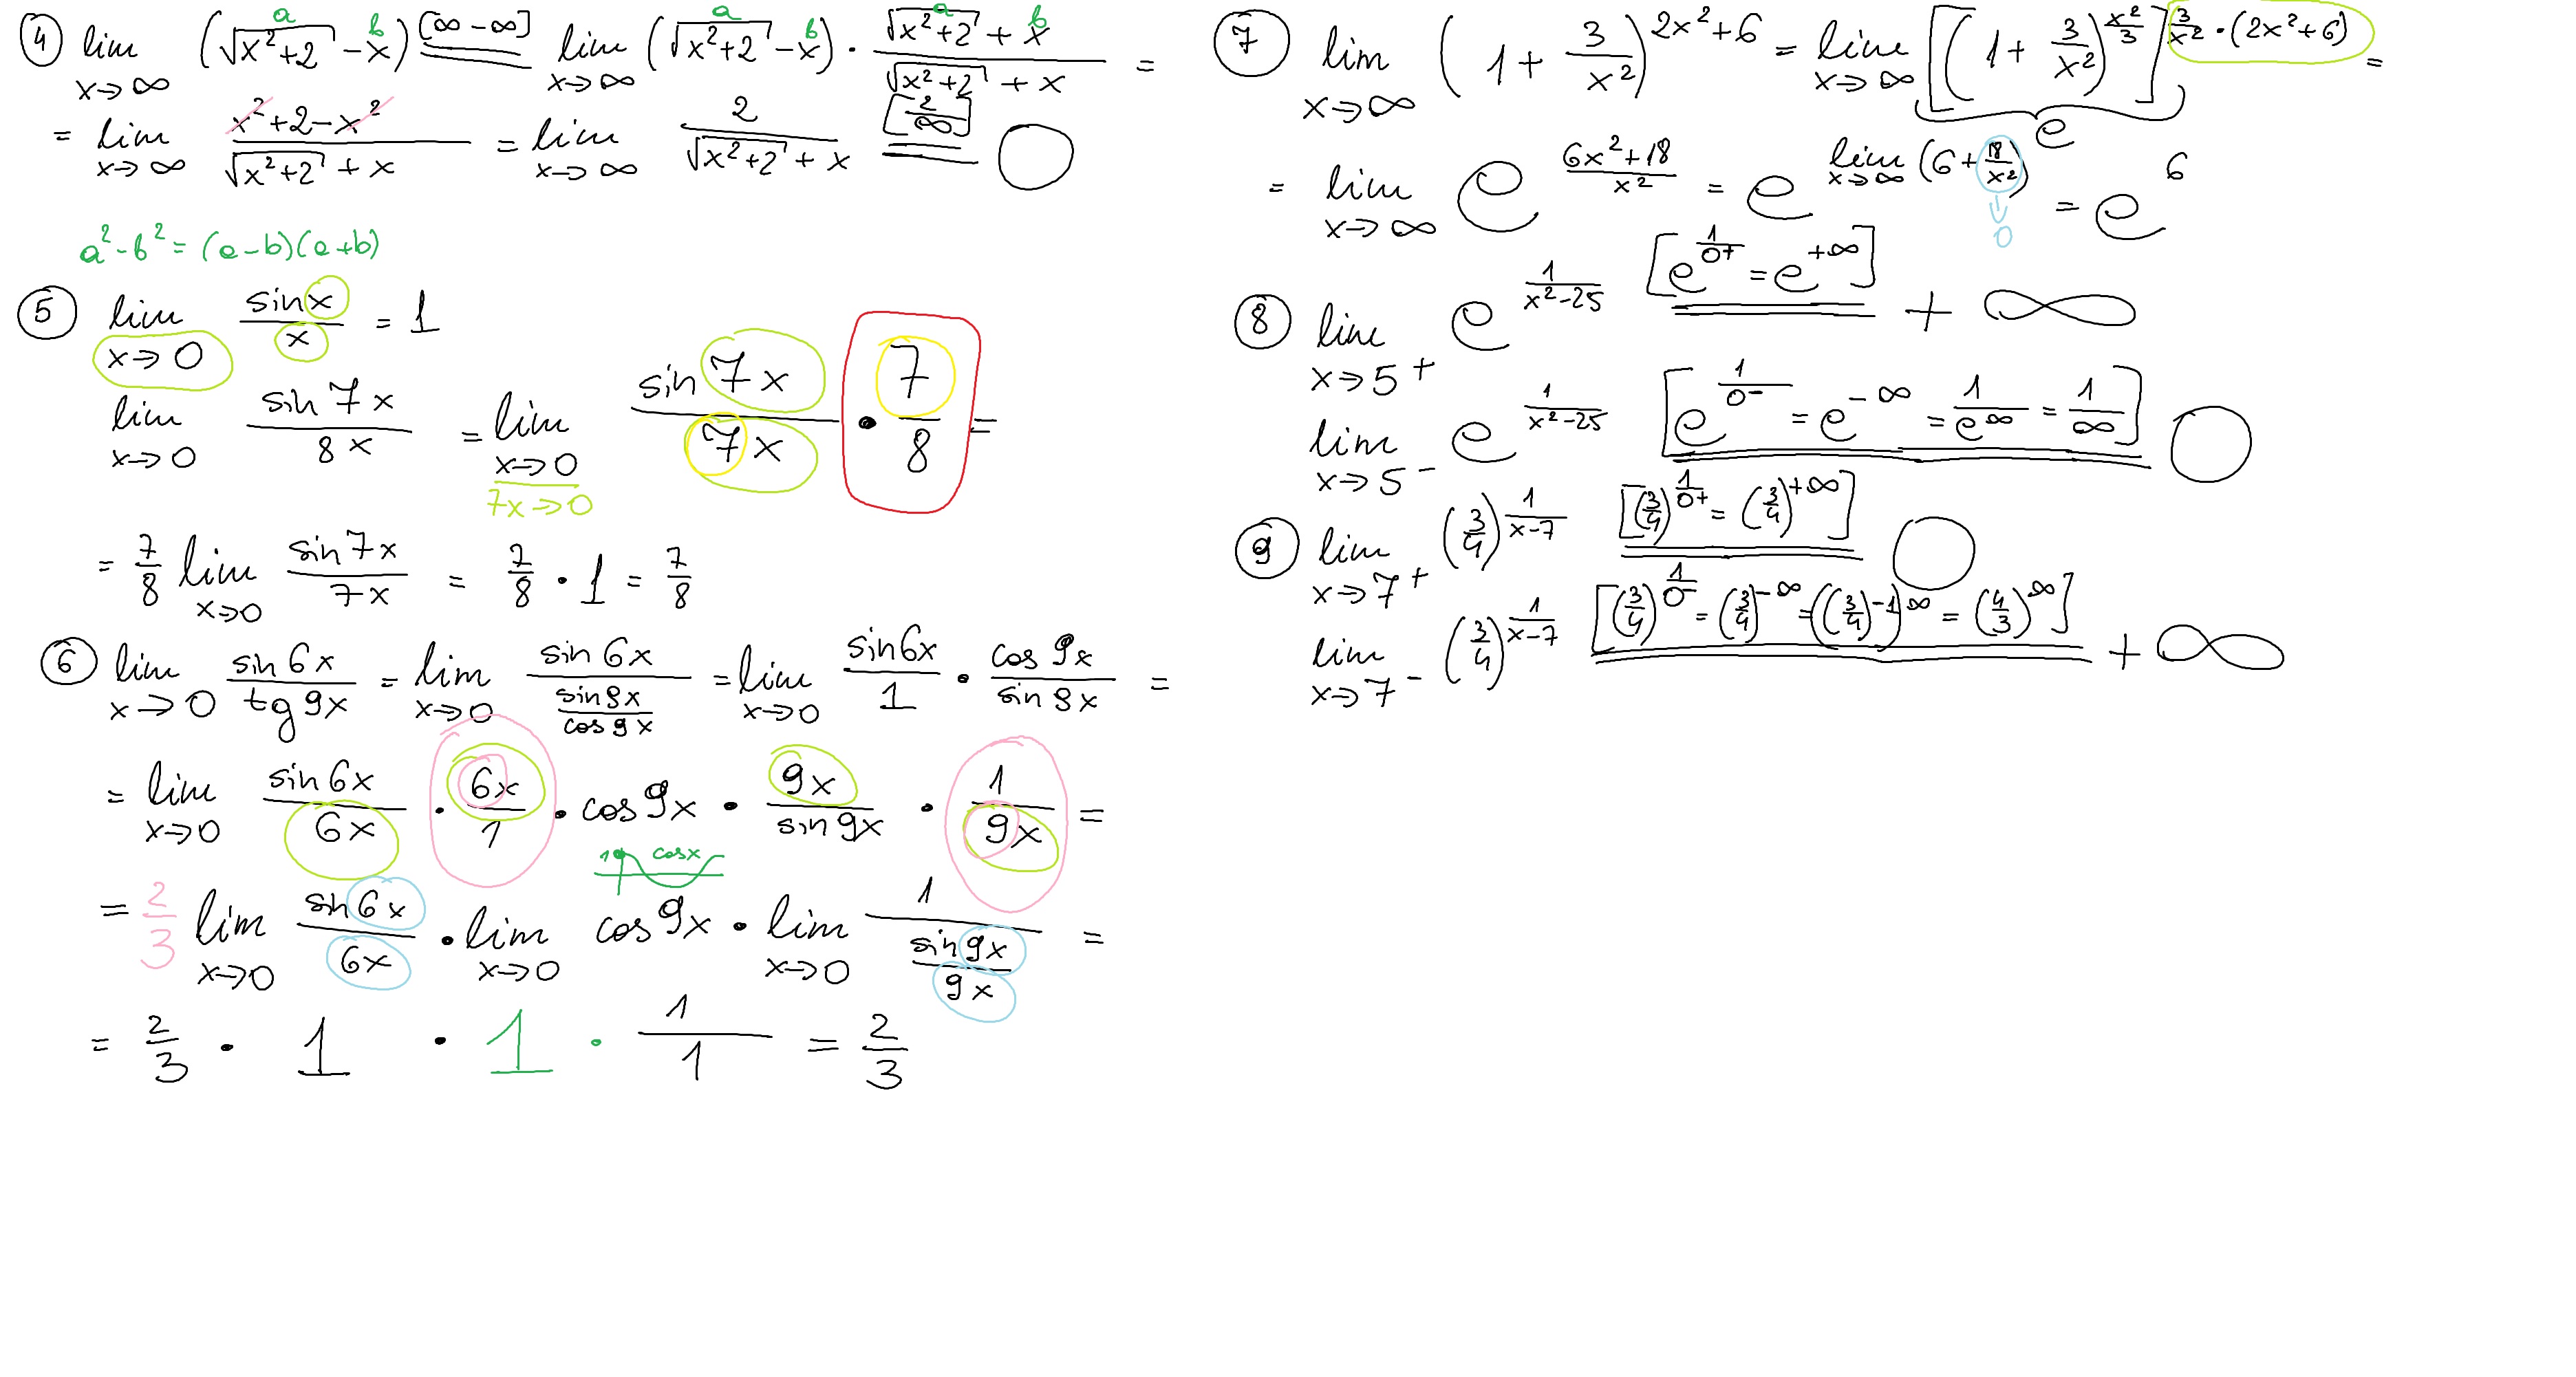 ④ lim x→∞ (√(x²+2) − x) [∞−∞] lim x→∞ (√(x²+2) − x) · (√(x²+2) + x)/(√(x²+2) + x) =
a b a b a b
= lim x→∞ (x²+2−x²)/(√(x²+2) + x) = lim x→∞ 2/(√(x²+2) + x) [2/∞] 0
a²−b² = (a−b)(a+b)
⑤ lim x→0 sin x/x = 1
lim x→0 sin 7x/8x = lim x→0 sin 7x/7x · 7/8 =
7x→0
= 7/8 lim x→0 sin 7x/7x = 7/8 · 1 = 7/8
⑥ lim x→0 sin 6x/tg 9x = lim x→0 sin 6x/(sin 9x/cos 9x) = lim x→0 sin 6x/1 · cos 9x/sin 9x =
= lim x→0 sin 6x/6x · 6x/1 · cos 9x · 9x/sin 9x · 1/9x =
1 cos x
= 2/3 lim x→0 sin 6x/6x · lim x→0 cos 9x · lim x→0 1/(sin 9x/9x) =
= 2/3 · 1 · 1 · 1/1 = 2/3
⑦ lim x→∞ (1 + 3/x²)^(2x²+6) = lim x→∞ [(1 + 3/x²)^(x²/3)]^(3/x² · (2x²+6)) =
e
= lim x→∞ e^((6x²+18)/x²) = e^(lim x→∞ (6 + 18/x²)) = e^6
0
⑧ lim x→5+ e^(1/(x²−25)) [e^(1/0+) = e^(+∞)] +∞
lim x→5− e^(1/(x²−25)) [e^(1/0−) = e^(−∞) = 1/e^∞ = 1/∞] 0
⑨ lim x→7+ (3/4)^(1/(x−7)) [(3/4)^(1/0+) = (3/4)^(+∞)] 0
lim x→7− (3/4)^(1/(x−7)) [(3/4)^(1/0−) = (3/4)^(−∞) = ((3/4)^(−1))^∞ = (4/3)^∞] +∞